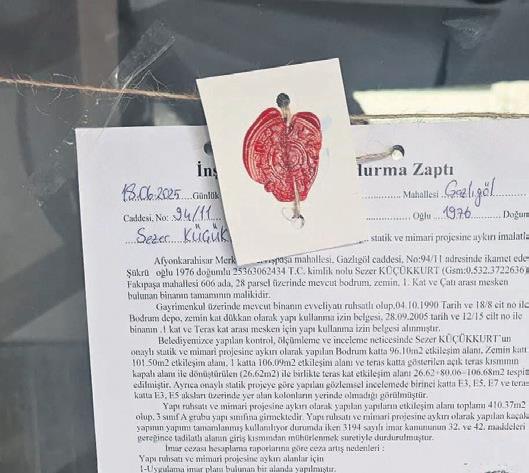 İnş durma Zaptı
13.06.2025 Günlük Mahallesi Gazlıgöl
Caddesi, No: 94/11 Oğlu 1976 Doğum
Sezer KÜÇÜK statik ve mimari projesine aykırı imalatla
Afyonkarahisar Merk paşa mahallesi, Gazlıgöl caddesi, No:94/11 adresinde ikamet ede
Şükrü oğlu 1976 doğumlu 25363062434 T.C. kimlik nolu Sezer KÜÇÜKKURT (Gsm:0.532.3722636)
Fakıpaşa mahallesi 606 ada, 28 parsel üzerinde mevcut bodrum, zemin, 1. Kat ve Çatı arası mesken
bulunan binanın tamamının malikidir.
Gayrimenkul üzerinde mevcut binanın evveliyatı ruhsatlı olup,04.10.1990 Tarih ve 18/8 cit no ile
Bodrum depo, zemin kat dükkan olarak yapı kullanma izin belgesi, 28.09.2005 tarih ve 12/15 cilt no ile
binanın .1 kat ve Teras kat arası mesken için yapı kullanma izin belgesi alınmıştır.
Belediyemizce yapılan kontrol, ölçümleme ve inceleme neticesinde Sezer KÜÇÜKKURT'un
onaylı statik ve mimari projesine aykırı olarak yapılan Bodrum katta 96.10m2 etkileşim alanı, Zemin katt
101.50m2 etkileşim alanı, 1 katta 106.09m2 etkileşim alanı ve teras katta gösterilen açık teras kısmının
kapalı alanı ile dönüştürülen (26.62m2) ile birlikte teras kat etkileşim alanı 26.62+80.06=106.68m2 tespit
edilmiştir. Ayrıca onaylı statik projeye göre yapılan gözlemsel incelemede birinci katta E3, E5, E7 ve teras
katta E3, E5 aksları üzerinde yer alan kolonların yerinde olmadığı görülmüştür.
Yapı ruhsatı ve mimari projesine aykırı olarak yapılan yapıların etkileşim alanı toplamı 410.37m2
olup, 3 sınıf A grubu yapı sınıfına girmektedir. Yapı ruhsatı ve mimari projesine aykırı olarak yapılan kaçak
yapının yapımı tamamlanmış kullanılıyor durumda iken 3194 sayılı imar kanununun 32. ve 42. maddeleri
gereğince tadilatlı alanın giriş kısmından mühürlenmek suretiyle durdurulmuştur.
İmar cezası hesaplama raporlarına göre ceza artış nedenleri :
Yapı ruhsatı ve mimari projesine aykırı olarak yapılan alanlar için
1-Uygulama imar planı bulunan bir alanda yapılmıştır.